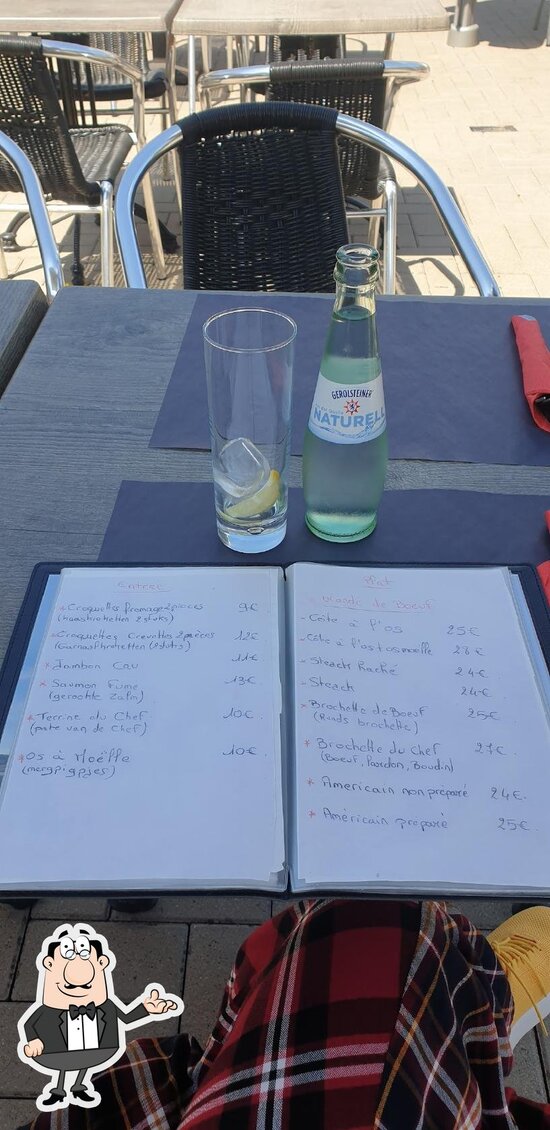 GEROLSTEINER
NATURELL
Entree
* Croquettes fromage 2 pieces 9€
(kaaskroketten 2 stuks)
* Croquettes Crevettes 2 pièces 12€
(Garnaalkroketten (2 stuks)
* Jambon Cru 11€
* Saumon Fumé 13€
(gerookte Zalm)
* Terrine du Chef 10€
(pate van de Chef)
* Os à Moëlle 10€
(mergpijpjes)
Plat
* Viande de Boeuf
- Côte à l'os 25€
- Côte à l'os + os moëlle 28€
- Steack Haché 24€
- Steack 24€
* Brochette de Boeuf 25€
(Runds brochette)
* Brochette du Chef 27€
(Boeuf, Lardon, Boudin)
* Americain non préparé 24€
* Américain préparé 25€